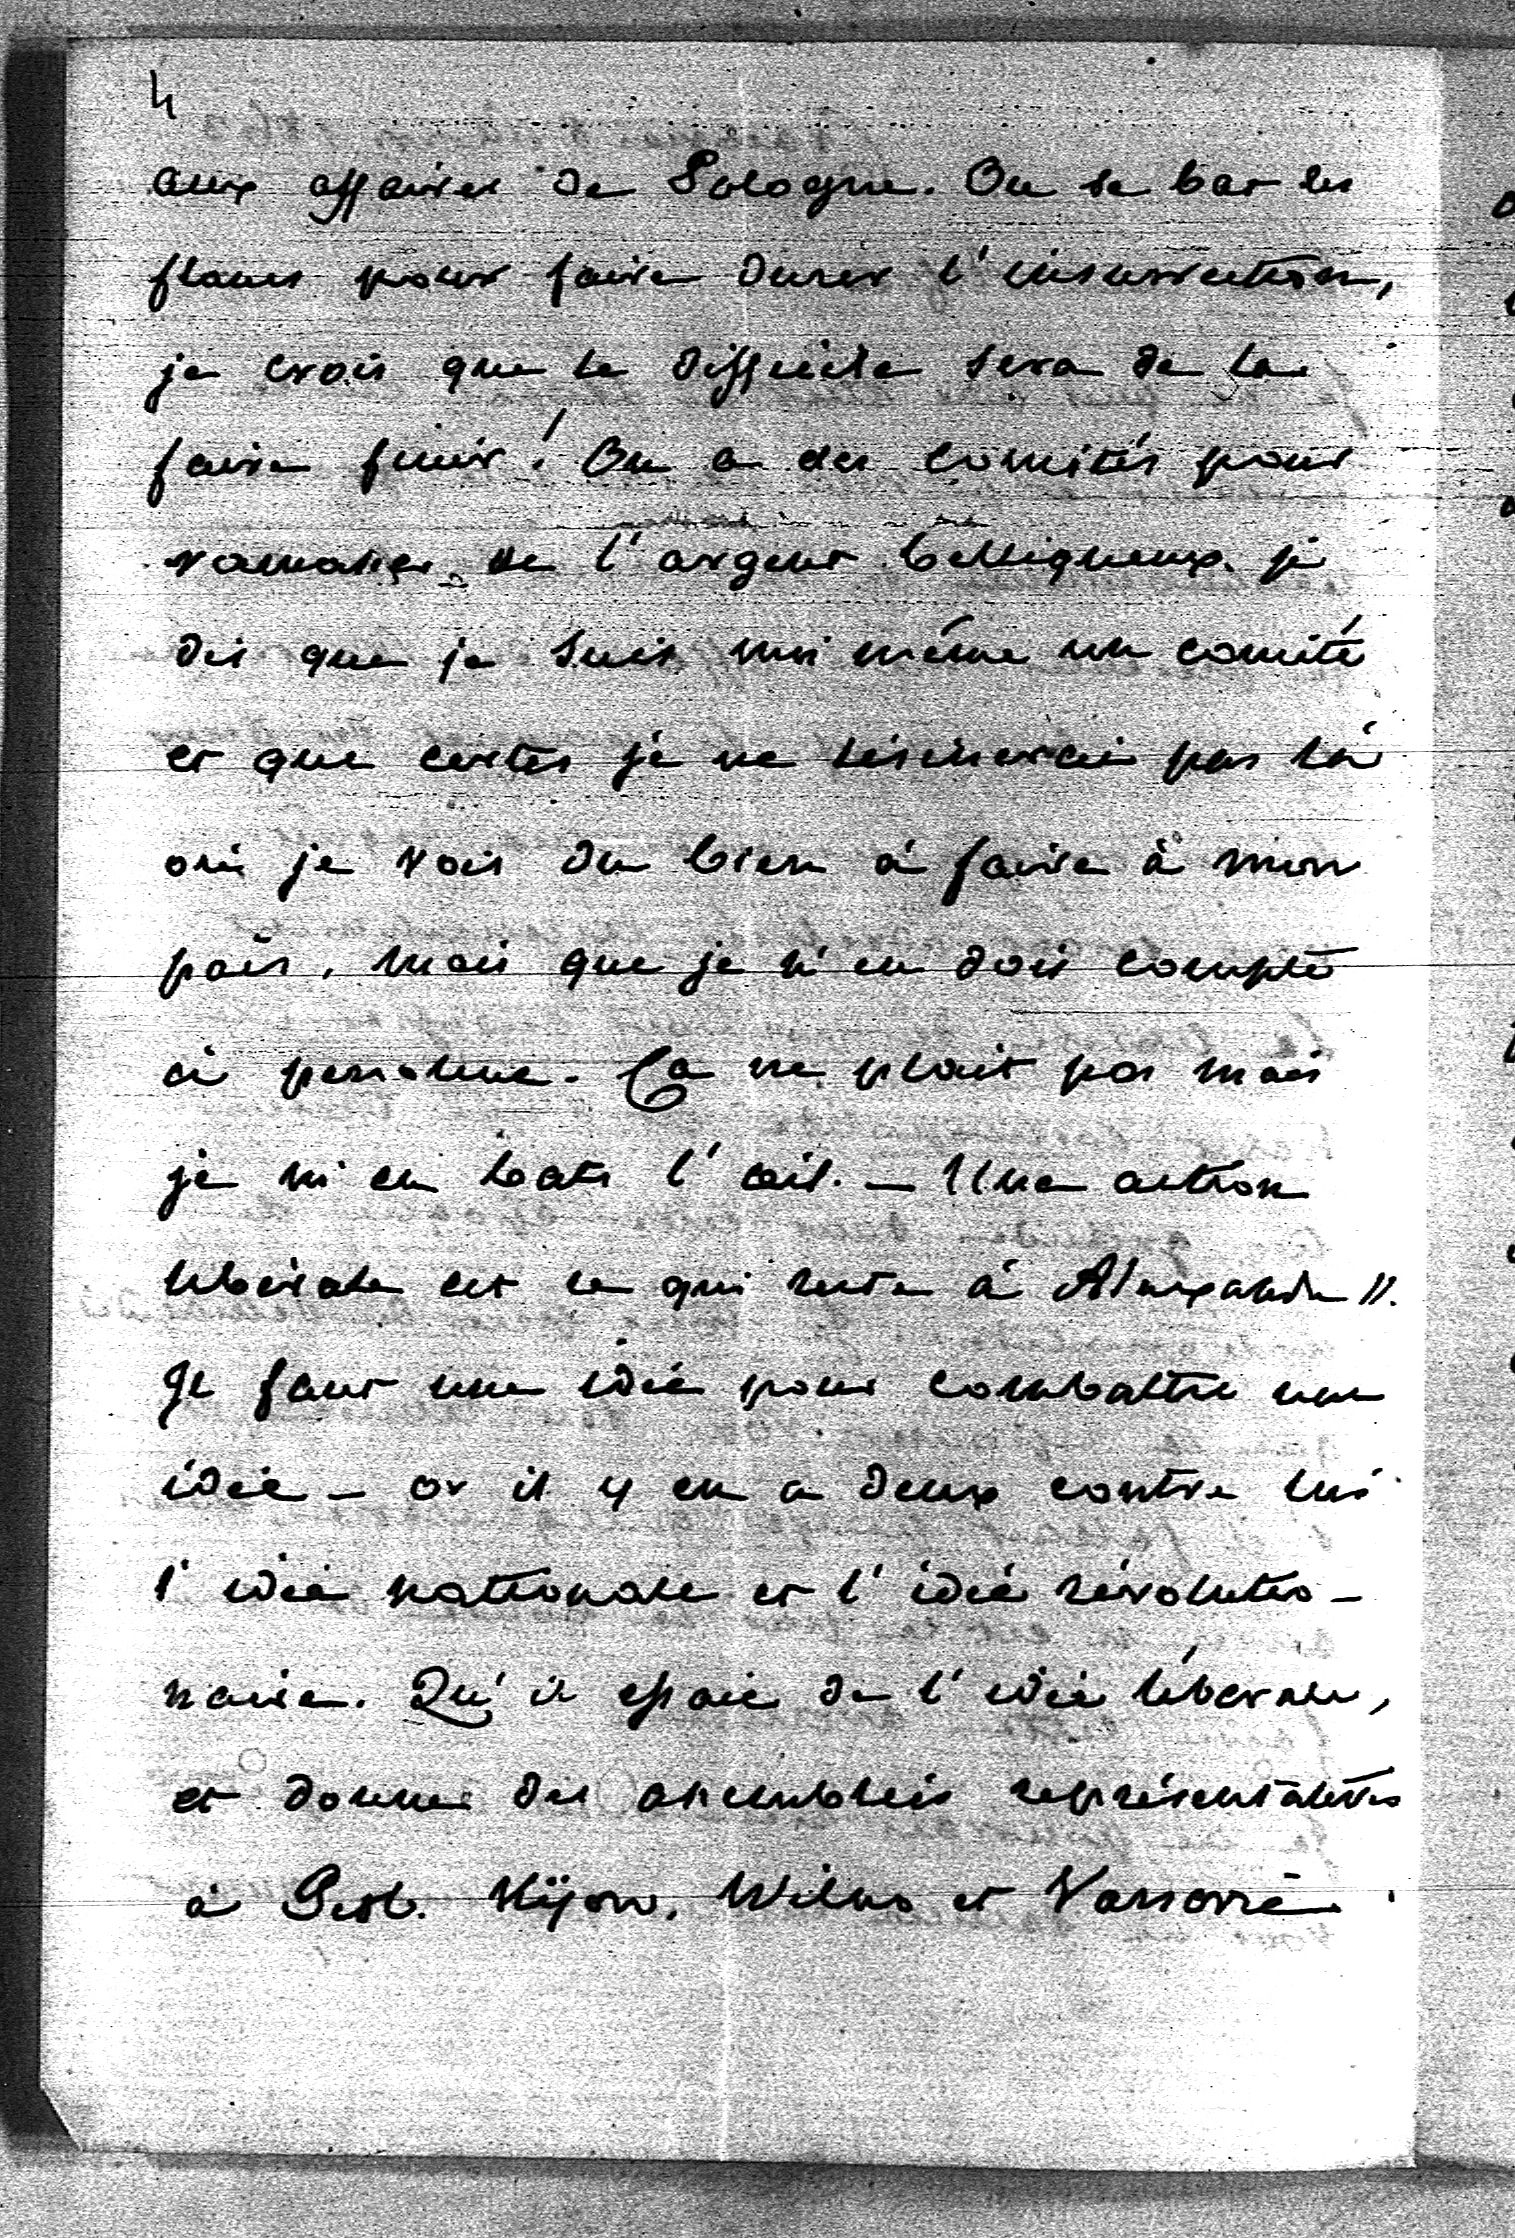 4
aux affaires de Pologne. On se bat les
flancs pour faire durer l'insurrection,
je crois que le difficile sera de la
faire finir! On a des comités pour
ramasser de l'argent belliqueux. je
dis que je suis moi même un comité
et que certes je ne lésinerai pas là
où je vois du bien à faire à mon
païs, mais que je n'en dois compte
à personne. Ça ne plait pas mais
je m'en bats l'œil. — Une action
libérale est ce qui reste à Alexandre II.
Il faut une idée pour combattre une
idée — or il y en a deux contre lui
l'idée nationale et l'idée révolutio-
naire. Qu'il essaie de l'idée libérale,
et donne des assemblées représentatives
à Petb. Kijow, Wilno et Varsovie.